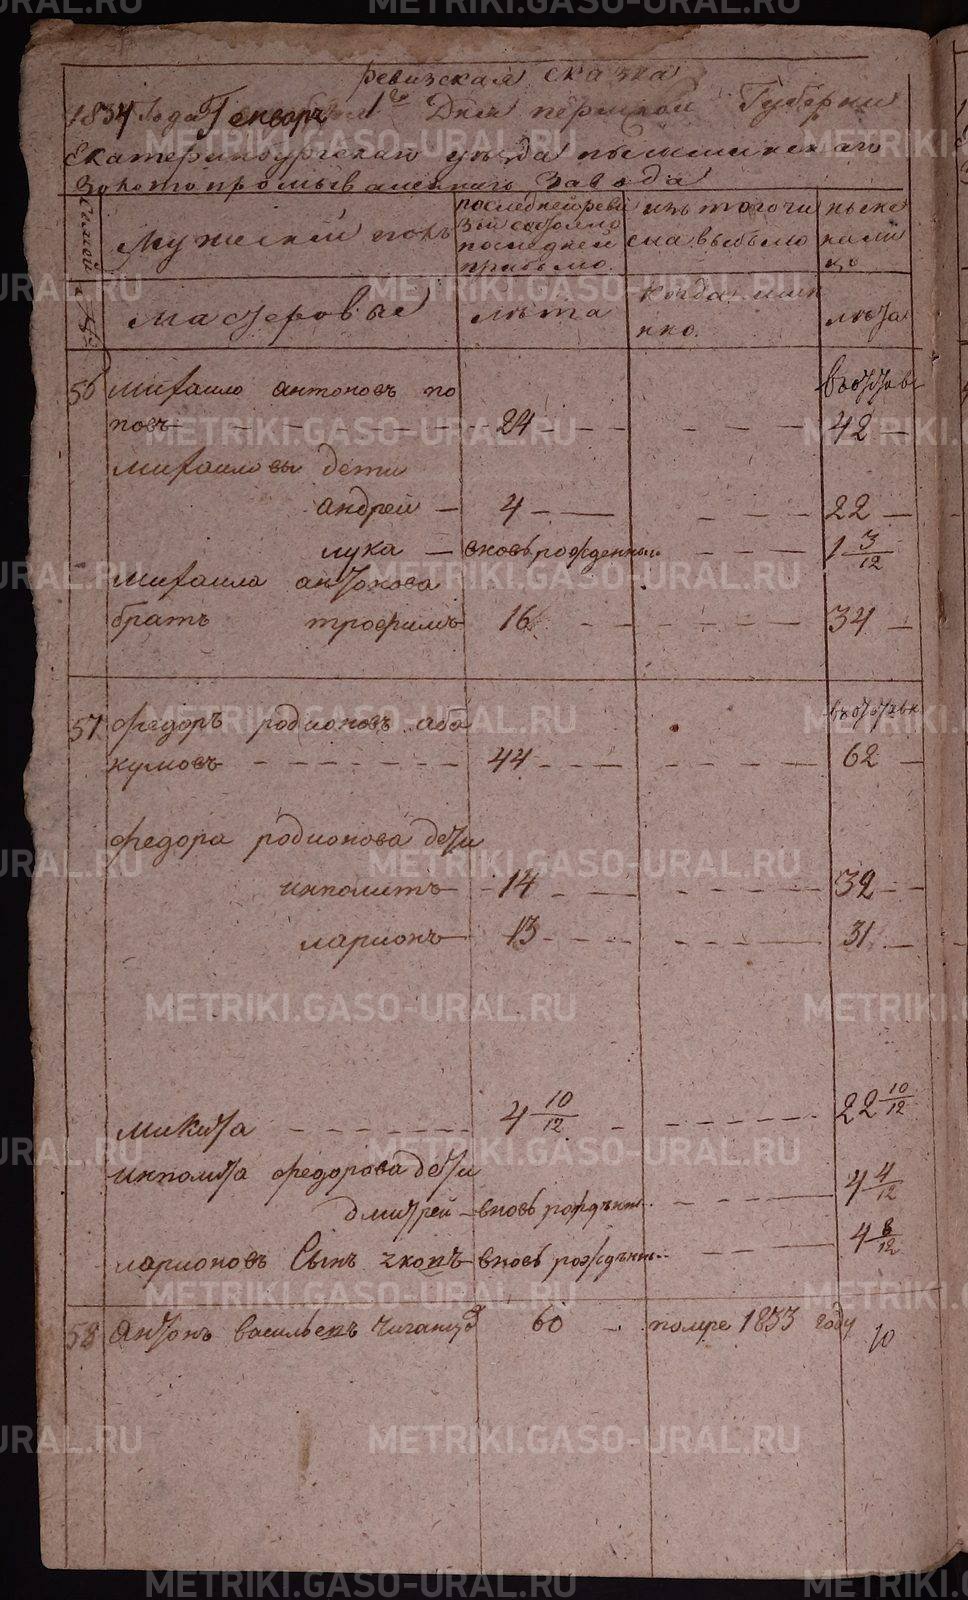 ревизская сказка
1834 Года Генваря 1го Дня пермской Губерни
Екатеринбургскаго уезда пышминскаго
Золотопромываленнаго Завода
мужеский полъ
последней реви
зии состояло
последней
прибыло
изъ того чи
сла выбыло
ныне
налиц
мастеровые
лета
когда
лета
56 михаило антоновъ по
повъ 24 42
михаиловы дети
андрей 4 22
лука вновьрожденный 1 3/12
михаила антонова
братъ трофимъ 16 34
57 федоръ родионовъ аба
кумовъ 44 62
федора родионова дети
иполитъ 14 32
ларионъ 13 31
микита 4 10/12 22 10/12
иполита федорова дети
дмитрей вновь рожденны 4 4/12
ларионовъ Сынъ вновь рожденны 4 8/12
58 антонъ васильевъ 60 помре 1833 году
METRIKI.GASO-URAL.RU